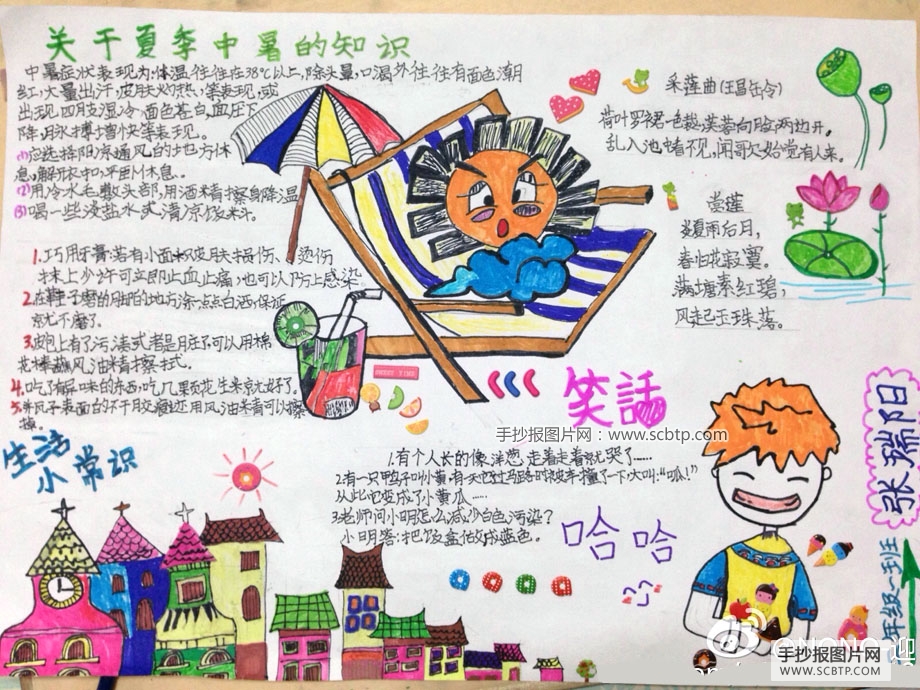 关于夏季中暑的知识
中暑症状表现为:体温往往在38℃以上,除头晕,口渴外往往有面色潮
红,大量出汗,皮肤灼热,等表现,或
出现四肢湿冷,面色苍白,血压下
降,脉搏增快等表现。
(1)应选择阴凉通风的地方休
息,解开衣扣,平卧休息。
(2)用冷水毛敷头部,用酒精擦身降温
(3)喝一些淡盐水或清凉饮料
1.巧用牙膏:若有小面积皮肤损伤、烫伤
抹上少许可立即止血止痛,也可以防止感染
2.在鞋子磨的脚的地方涂一点点白酒,保证
就不磨了。
3.皮包上有了污渍或者是脏了可以用棉
花棒蘸风油精擦拭。
4.吃了有异味的东西,吃几果花生米就好了。
5.
生活
小常识
采莲曲(王昌令)
荷叶罗裙一色裁,芙蓉向脸两边开。
乱入池中看不见,闻歌欠始觉有人来。
赏莲
炎夏雨后月,
春归花寂寞。
满塘素红碧,
风起玉珠落。
SWEET TIME
笑話
手抄报图片网:www.scbtp.com
1.有个人长的像洋葱,走着走着就哭了……
2.有一只鸭子叫小黄,有天它过马路时被车撞了一下,大叫:“呱!”
从此它变成了小黄瓜……
3.老师问小明怎么减少白色污染?
小明答:把饭盒做成蓝色。
哈哈
张瑞阳
年级一班
手抄报图片网
WWW.SCBTP.COM